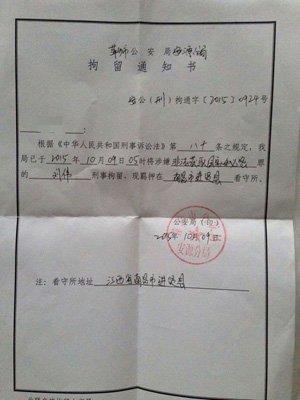 公 安 局 安源分局
拘 留 通 知 书
安公（刑）拘通字〔2015〕0924号
根据《中华人民共和国刑事诉讼法》第 八十 条之规定，我
局已于 2015 年 10 月 09 日 05 时将涉嫌 非法获取国家秘密 罪
的 刘伟 刑事拘留，现羁押在 南昌市进贤县 看守所。
公安局（印）
2015年10月09日
安源分局
注：看守所地址 江西省南昌市进贤县